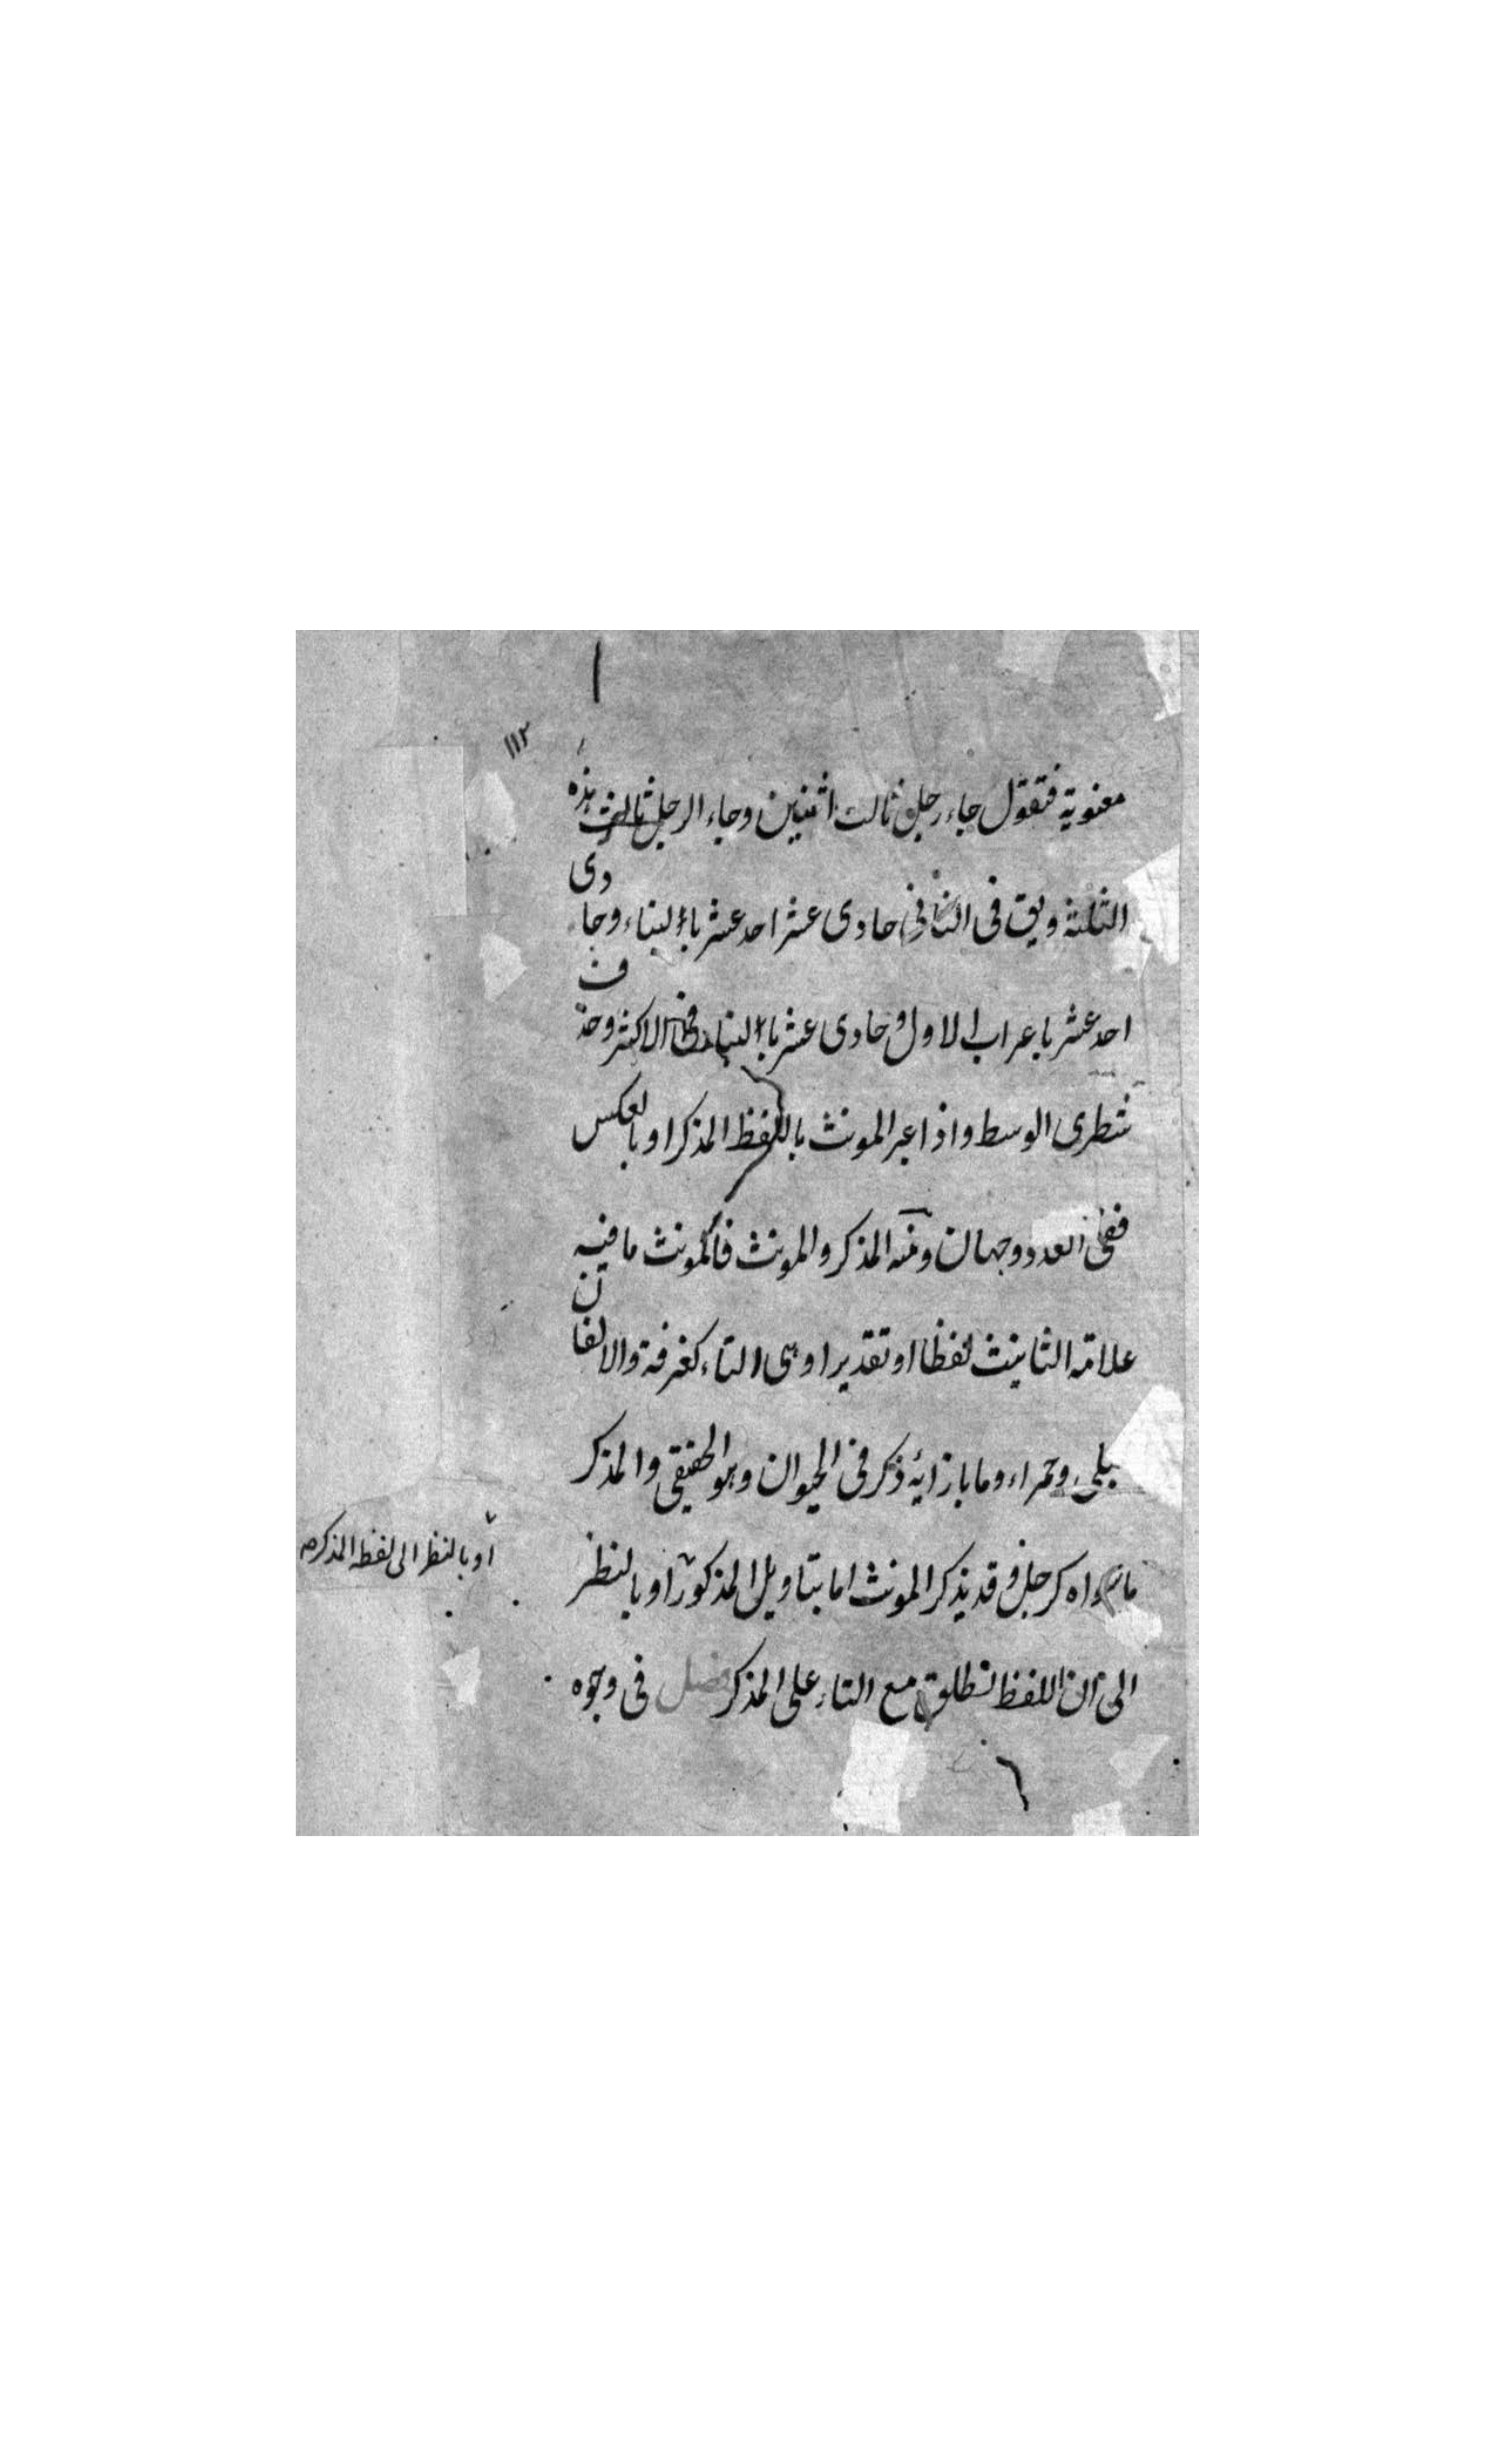 ١١٢
معنوية فتقول جاء رجل ثالث اثنين وجاء الرجل ثالث هذه
الثلثة ويق فى الثانى حادى عشر احد عشر بالبناء وحادى
احد عشر باعراب الاول وحادى عشر بالبناء فى الاكثر وحذف
شطرى الوسط واذا عبر المونث باللفظ المذكر او بالعكس
ففى العدد وجهان ومنه المذكر والمونث فالمونث ما فيه
علامة التانيث لفظا او تقديرا وهى التاء كغرفة والالفان
وحمراء وما بازائه ذكر فى الحيوان وهو الحقيقى والمذكر
ما سواه كرجل وقد يذكر المونث اما بتاويل المذكور او بالنظر
او بالنظر الى لفظه المذكر صه
الى ان اللفظ مع التاء على المذكر فصل فى وجوه